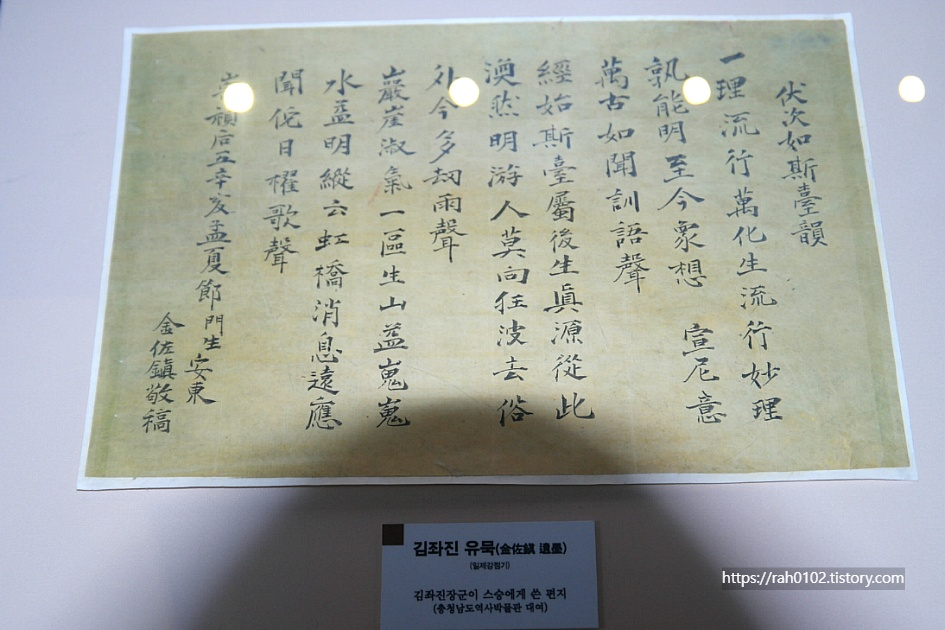 伏次如斯臺韻
一理流行萬化生流行妙理
孰能明至今象想 宣尼意
萬古如聞訓語聲
經始斯臺屬後生眞源從此
渙然明游人莫向狂波去俗
外今多刼雨聲
巖崖淑氣一區生山益嵬嵬
水益明縱云虹橋消息遠應
聞佗日櫂歌聲
崇禎后五辛亥孟夏節門生 安東
金佐鎭敬稿
김좌진 유묵(金佐鎭 遺墨)
(일제강점기)
김좌진장군이 스승에게 쓴 편지
(충청남도역사박물관 대여)
https://rah0102.tistory.com